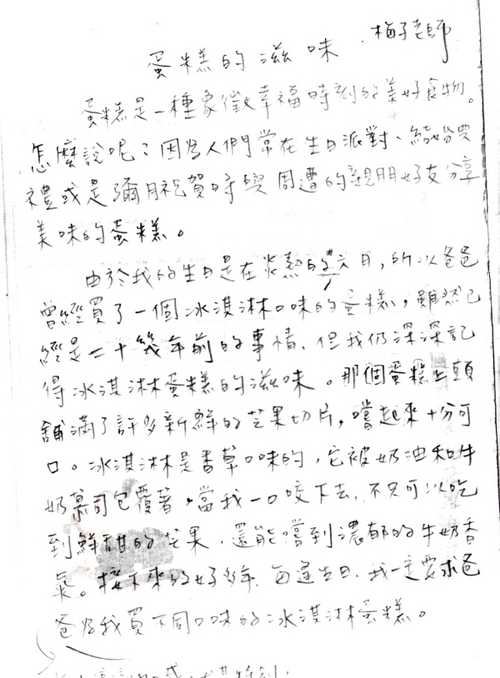 梅子老師
蛋糕的滋味
蛋糕是一種象徵幸福時刻的美好食物。
怎麼說呢？因為人們常在生日派對、結婚典
禮或是彌月祝賀時與周遭的親朋好友分享
美味的蛋糕。
由於我的生日是在炎熱的六月，所以爸爸
曾經買了一個冰淇淋口味的蛋糕，雖然已
經是二十幾年前的事情，但我仍深深記
得冰淇淋蛋糕的滋味。那個蛋糕上頭
舖滿了許多新鮮的芒果切片，嚐起來十分可
口。冰淇淋是香草口味的，它被奶油和牛
奶慕司包覆著，當我一口咬下去，不只可以吃
到鮮甜的芒果，還能嚐到濃郁的牛奶香
氣。接下來的好多年，每逢生日，我一定要求爸
爸給我買不同口味的冰淇淋蛋糕。